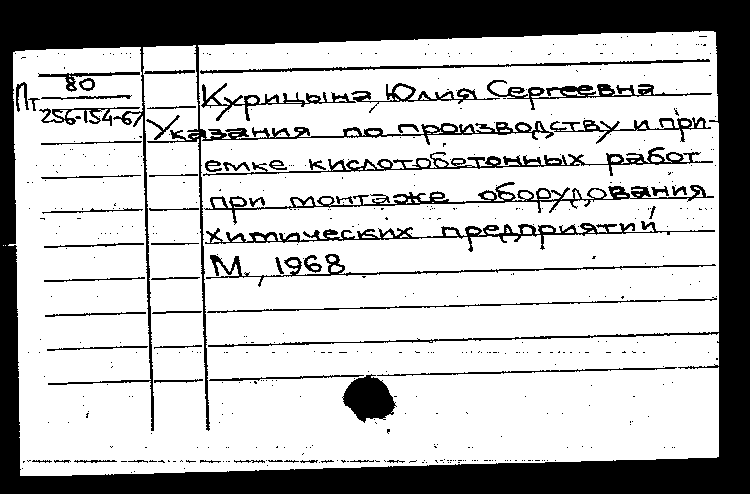 Пт 80
256-154-67
Курицына, Юлия Сергеевна.
Указания по производству и при-
емке кислотобетонных работ
при монтаже оборудования
химических предприятий.
М., 1968.